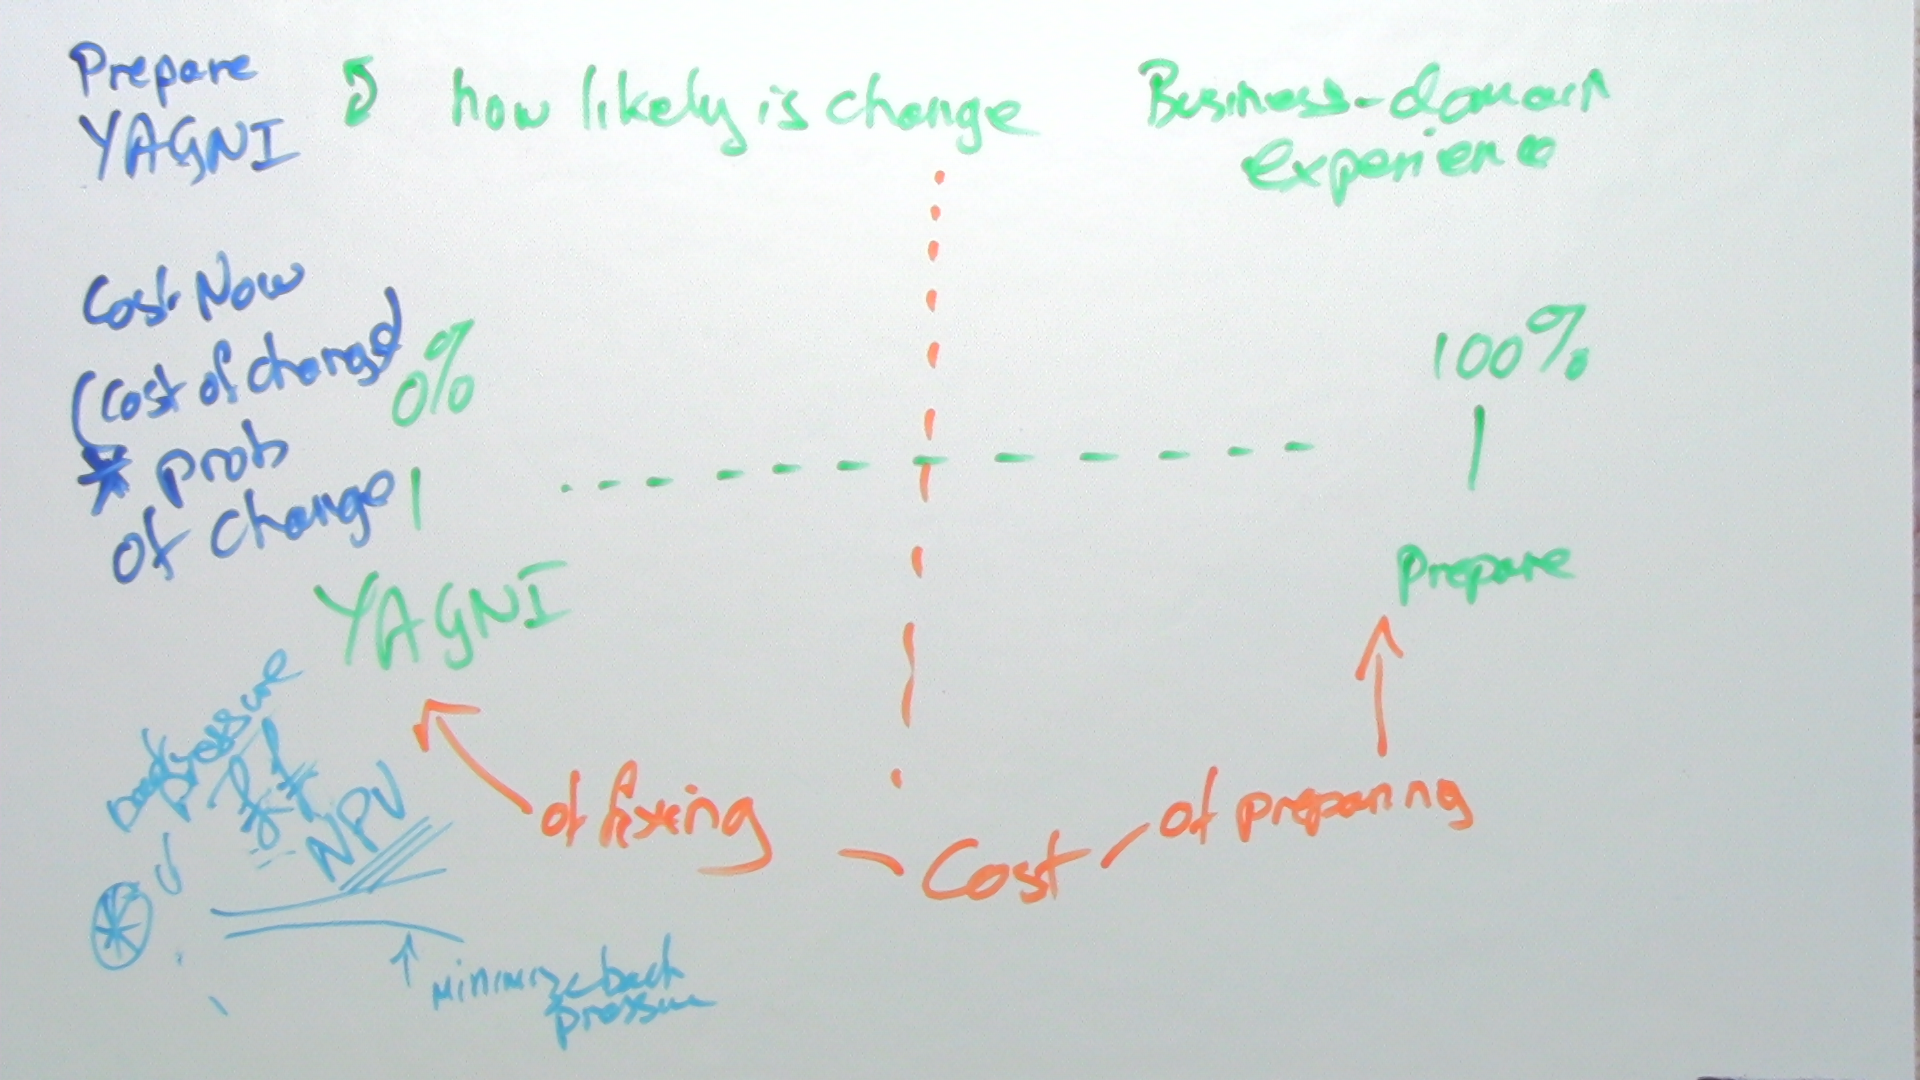 Prepare
YAGNI
how likely is change
Business-domain
experience
Cost Now
(Cost of change)
* prob
of change
0%
100%
YAGNI
Prepare
backpressure
NPV
of fixing
Cost
of preparing
minimize back
pressure